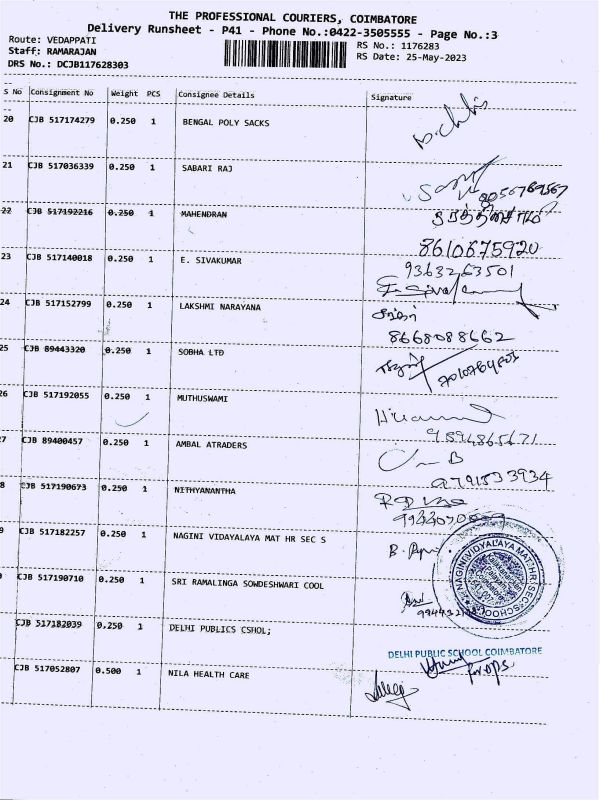 THE PROFESSIONAL COURIERS, COIMBATORE
Delivery Runsheet - P41 - Phone No.:0422-3505555 - Page No.:3
Route: VEDAPPATI
Staff: RAMARAJAN
DRS No.: DCJB117628303
RS No.: 1176283
RS Date: 25-May-2023
S No Consignment No Weight PCS Consignee Details Signature
20 CJB 517174279 0.250 1 BENGAL POLY SACKS
21 CJB 517036339 0.250 1 SABARI RAJ
22 CJB 517192216 0.250 1 MAHENDRAN
8610675920
23 CJB 517140018 0.250 1 E. SIVAKUMAR
9363263501
24 CJB 517152799 0.250 1 LAKSHMI NARAYANA
8668088662
25 CJB 89443320 0.250 1 SOBHA LTD
26 CJB 517192055 0.250 1 MUTHUSWAMI
9894865671
7 CJB 89400457 0.250 1 AMBAL ATRADERS
9791533934
8 CJB 517190673 0.250 1 NITHYANANTHA
9 CJB 517182257 0.250 1 NAGINI VIDAYALAYA MAT HR SEC S
NAGINI VIDYALAYA MAT. HR. SEC. SCHOOL
CJB 517190710 0.250 1 SRI RAMALINGA SOWDESHWARI COOL
CJB 517182039 0.250 1 DELHI PUBLICS CSHOL;
DELHI PUBLIC SCHOOL COIMBATORE
for DPS
CJB 517052807 0.500 1 NILA HEALTH CARE